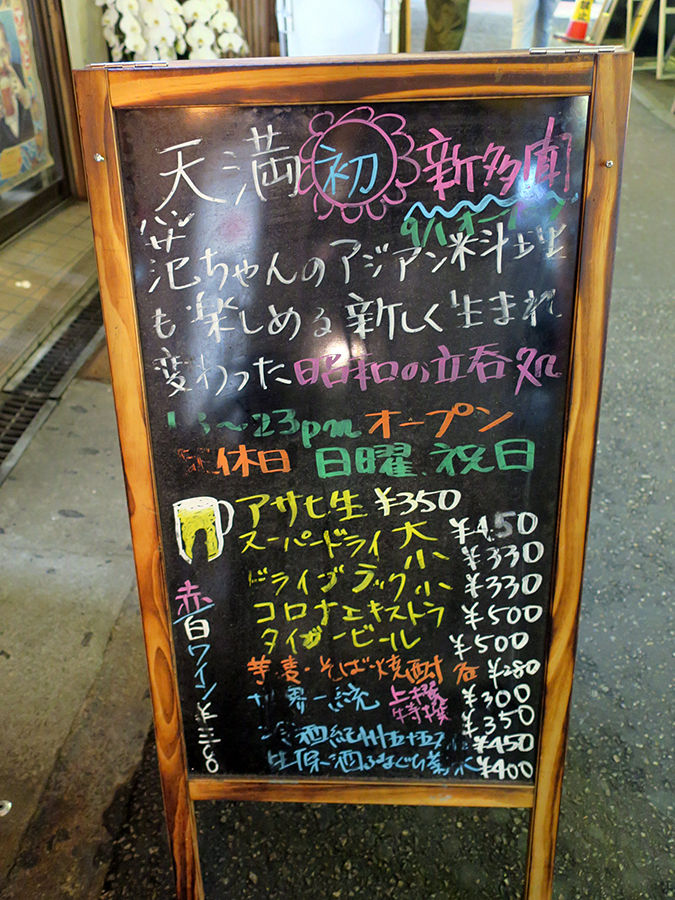 天満 初 新多聞
9/1オープン
范ちゃんのアジアン料理
も楽しめる新しく生まれ
変わった昭和の立呑処
13〜23pm オープン
定休日 日曜、祝日
アサヒ生 ¥350
スーパードライ 大 ¥450
小 ¥330
ドライブラック小 ¥330
コロナエキストラ ¥500
タイガービール ¥500
芋麦・そば・焼酎 各 ¥280
世界一統 上撰 ¥300
特撰 ¥350
冷酒紀州五十五万石 ¥450
¥400
赤
白ワイン